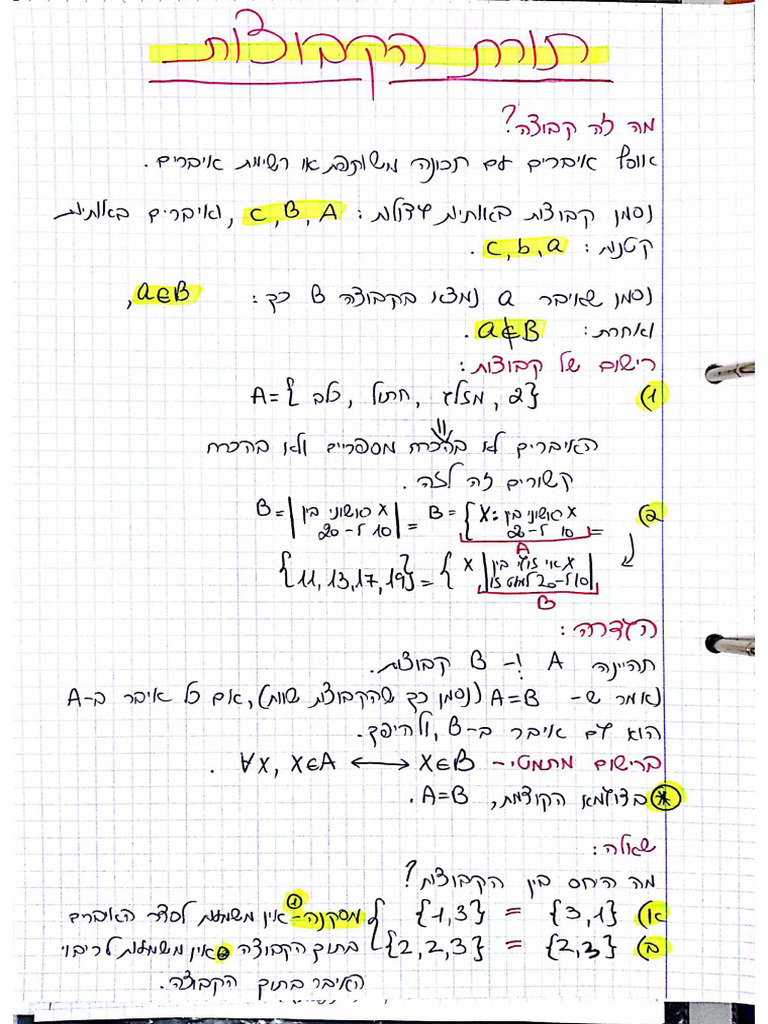 תורת הקבוצות
מה זה קבוצה?
אוסף איברים עם תכונה משותפת או רשימת איברים.
נסמן קבוצות באותיות גדולות: A, B, C, ואיברים באותיות
קטנות: a, b, c.
נסמן שאיבר a נמצא בקבוצה B כך: a∈B,
ואחרת: a∉B.
רישום של קבוצות:
1) A={2, מזלג, חתול, כלב}
⇓
האיברים לא בהכרח מספריים ולא בהכרח
קשורים זה לזה.
2) B = {X: X ראשוני בין 10 ל-20} = B = |X ראשוני בין 10 ל-20| =
A
{X | X אי זוגי בין 10 ל-20 למעט 15} = {11, 13, 17, 19}
B
הגדרה:
תהיינה A ו-B קבוצות.
נאמר ש- A=B (נסמן כך שהקבוצות שוות), אם כל איבר ב-A
הוא גם איבר ב-B, ולהיפך.
ברישום מתמטי- ∀x, x∈A ⟷ x∈B.
* בדוגמא הקודמת, A=B.
שאלה:
מה היחס בין הקבוצות?
א) {1,3} = {3,1} מסקנה- 1 אין משמעות לסדר האיברים
ב) {2,2,3} = {2,3} בתוך הקבוצה 2 אין משמעות לריבוי
האיבר בתוך הקבוצה.